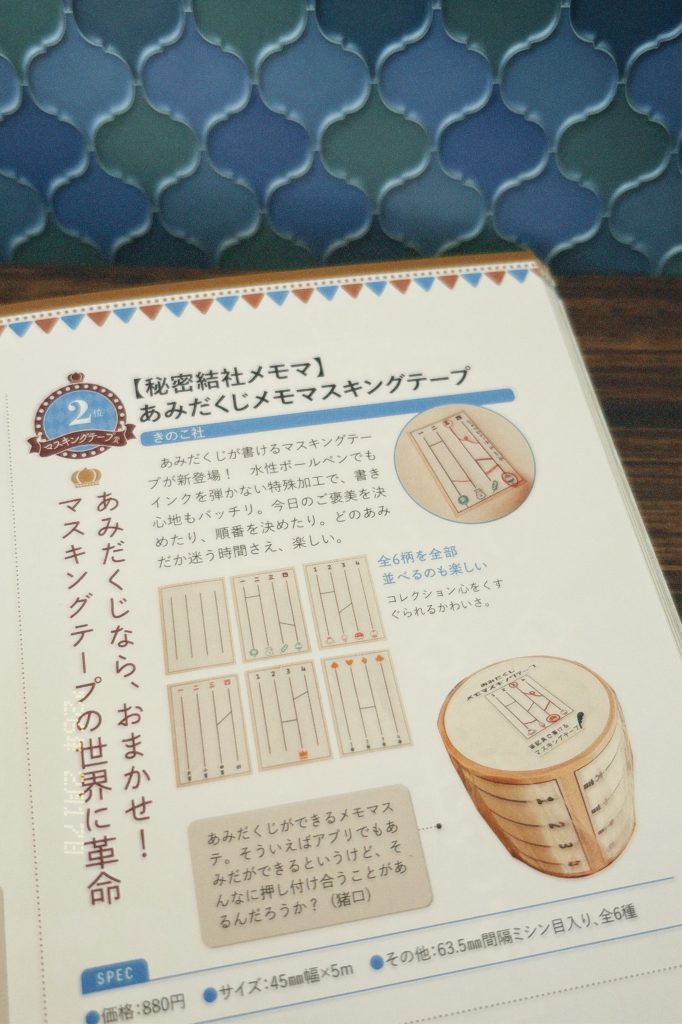 【秘密結社メモマ】
あみだくじメモマスキングテープ
2位
マスキングテープ賞
きのこ社
あみだくじが書けるマスキングテー
プが新登場！ 水性ボールペンでも
インクを弾かない特殊加工で、書き
心地もバッチリ。今日のご褒美を決
めたり、順番を決めたり。どのあみ
だか迷う時間さえ、楽しい。
あみだくじなら、おまかせ！
マスキングテープの世界に革命
全6柄を全部
並べるのも楽しい
コレクション心をくす
ぐられるかわいさ。
一 二 三 四
1 2 3 4
一 二 三 四
1 2 3 4
筆記具で書ける
マスキングテープ
1 2 3 4
あみだくじができるメモマス
テ。そういえばアプリでもあ
みだができるというけど、そ
んなに押し付け合うことがあ
るんだろうか？（猪口）
SPEC
●価格：880円 ●サイズ：45㎜幅×5m ●その他：63.5㎜間隔ミシン目入り、全6種